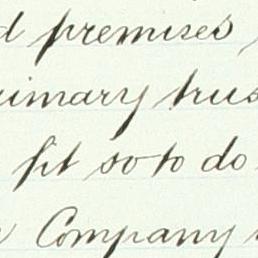 d premises
rimary trus
fit so to do
Company